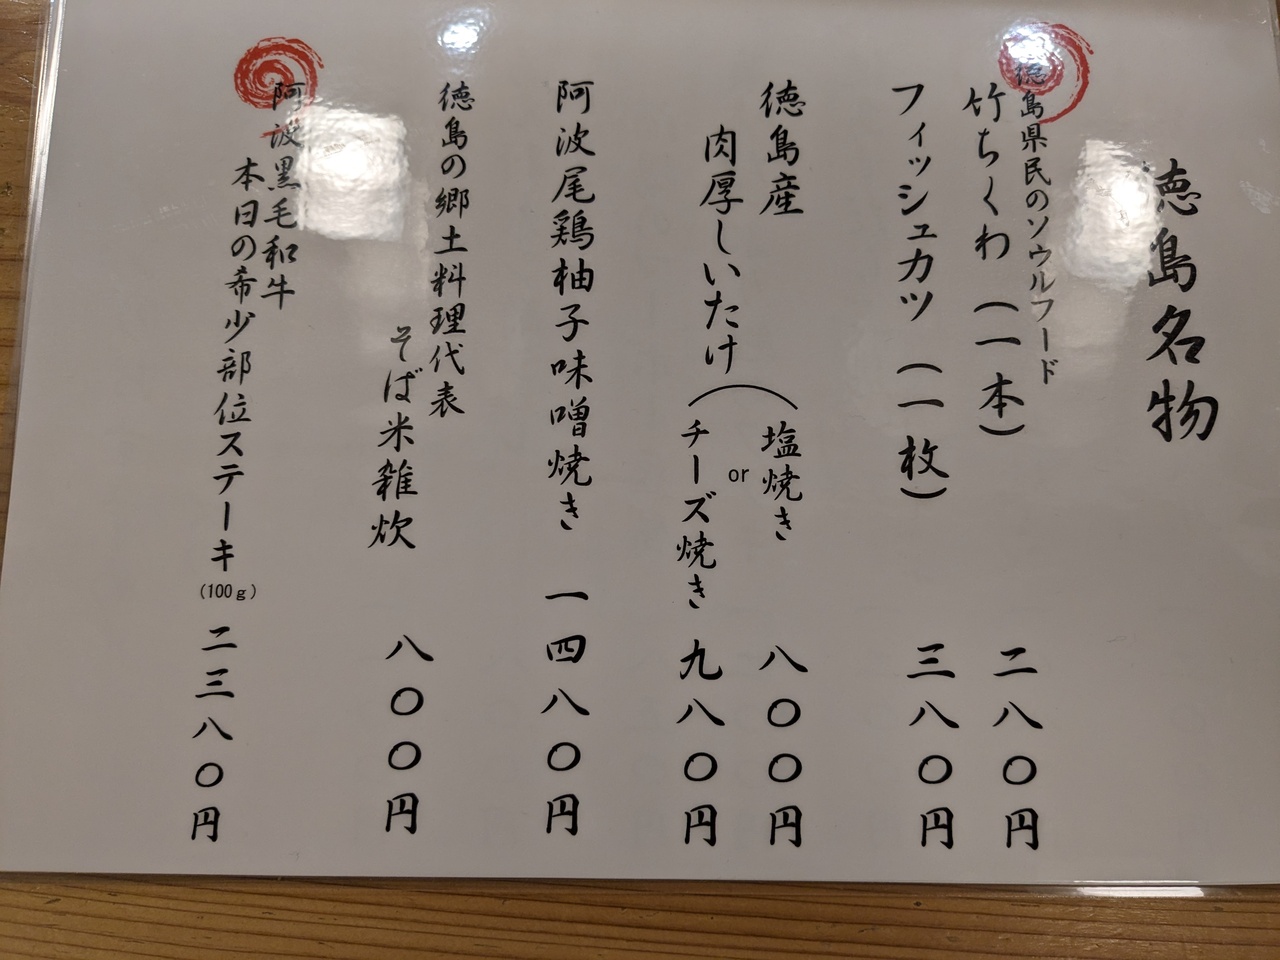 徳島名物
徳島県民のソウルフード
竹ちくわ（一本） 二八〇円
フィッシュカツ（一枚） 三八〇円
徳島産
肉厚しいたけ
塩焼き 八〇〇円
or
チーズ焼き 九八〇円
阿波尾鶏柚子味噌焼き 一四八〇円
徳島の郷土料理代表
そば米雑炊 八〇〇円
阿波黒毛和牛
本日の希少部位ステーキ(100g) 二三八〇円